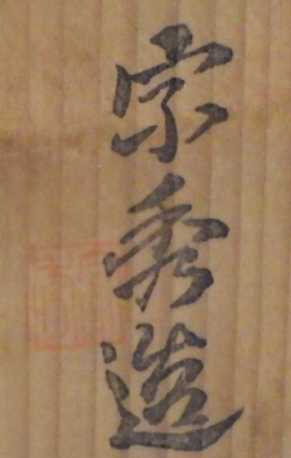 宗秀造